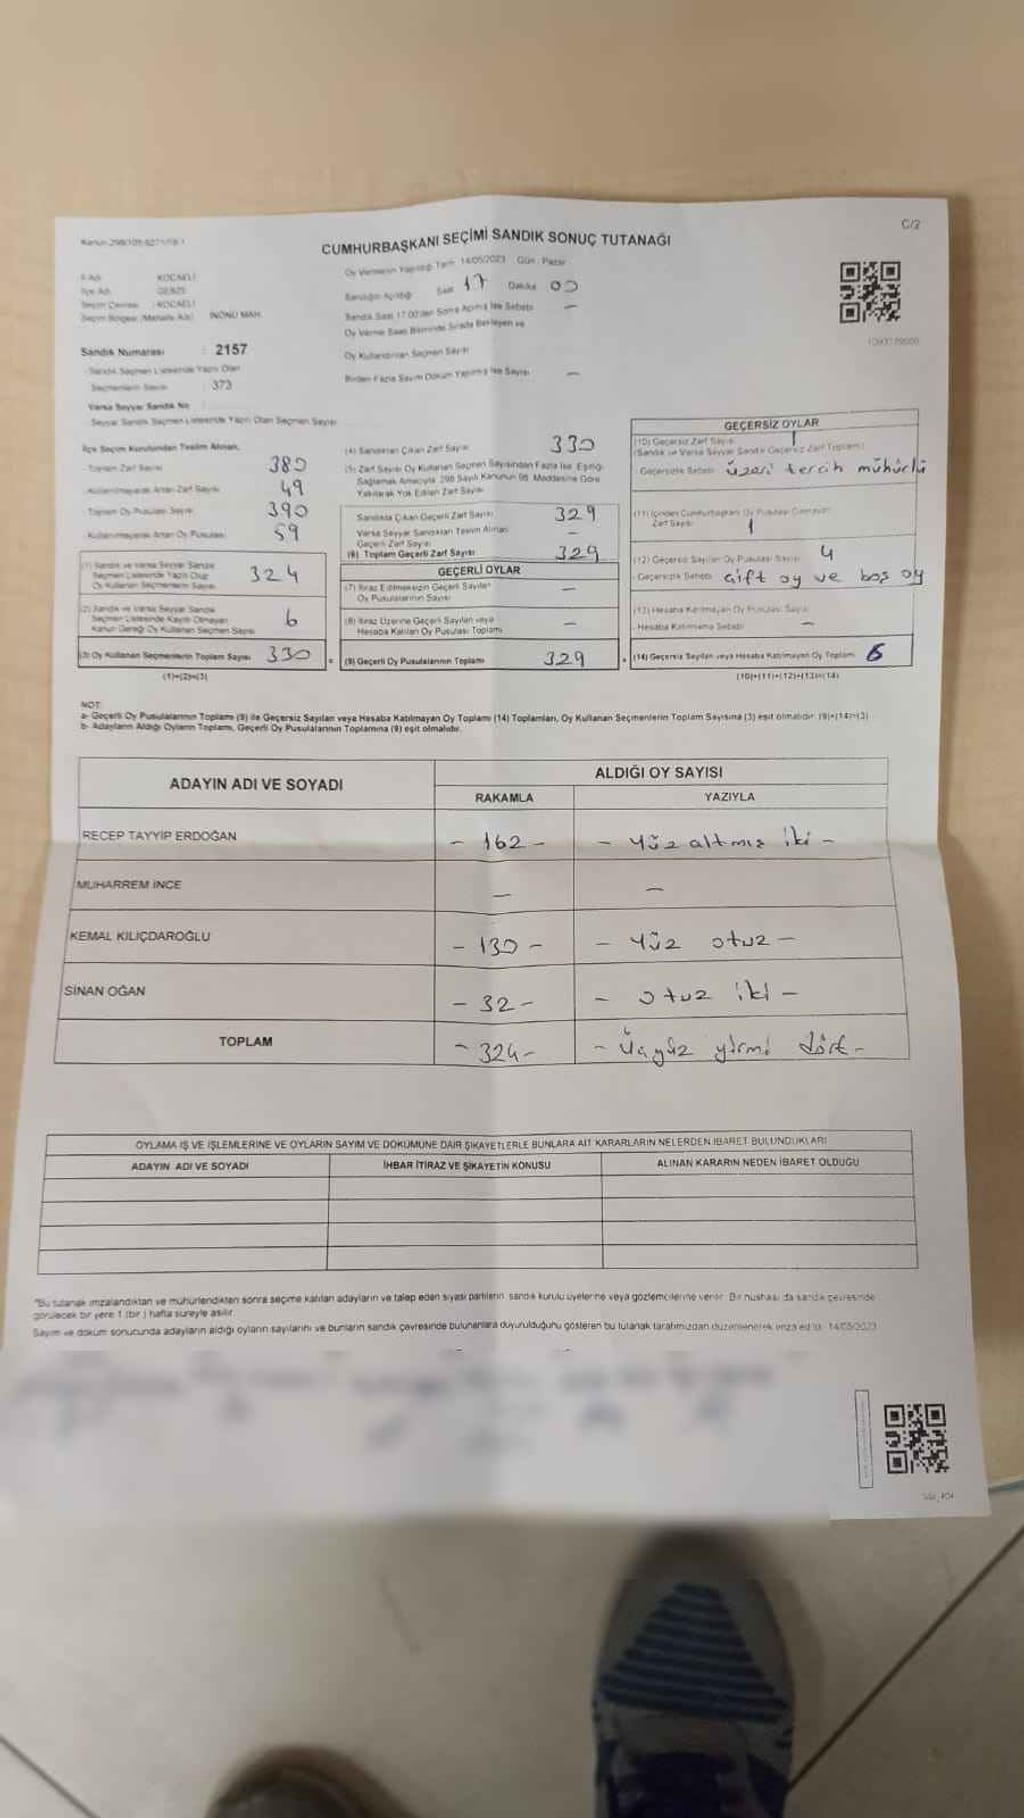 C/2
CUMHURBAŞKANI SEÇİMİ SANDIK SONUÇ TUTANAĞI
Oy Vermenin Yapıldığı Tarih 14/05/2023 Gün: Pazar
İl Adı KOCAELİ
İlçe Adı GEBZE
Seçim Çevresi KOCAELİ
Seçim Bölgesi (Mahalle Adı) İNÖNÜ MAH.
Sandığın Açıldığı Saat 17 Dakika 00
Sandık Saat 17.00'den Sonra Açılmış İse Sebebi —
Oy Verme Saati Bitiminde Sırada Bekleyen ve
Oy Kullandırılan Seçmen Sayısı
Birden Fazla Sayım Döküm Yapılmış İse Sayısı —
Sandık Numarası : 2157
Sandık Seçmen Listesinde Yazılı Olan
Seçmenlerin Sayısı : 373
Varsa Seyyar Sandık No
Seyyar Sandık Seçmen Listesinde Yazılı Olan Seçmen Sayısı
İlçe Seçim Kurulundan Teslim Alınan,
- Toplam Zarf Sayısı 380
- Kullanılmayarak Artan Zarf Sayısı 49
- Toplam Oy Pusulası Sayısı 390
- Kullanılmayarak Artan Oy Pusulası 59
(1) Sandık ve Varsa Seyyar Sandık
Seçmen Listesinde Yazılı Olup
Oy Kullanan Seçmenlerin Sayısı 324
(2) Sandık ve Varsa Seyyar Sandık
Seçmen Listesinde Kayıtlı Olmayan
Kanun Gereği Oy Kullanan Seçmen Sayısı 6
(3) Oy Kullanan Seçmenlerin Toplam Sayısı 330
(1)+(2)=(3)
(4) Sandıktan Çıkan Zarf Sayısı 330
(5) Zarf Sayısı Oy Kullanan Seçmen Sayısından Fazla İse, Eşitliği
Sağlamak Amacıyla 298 Sayılı Kanunun 98. Maddesine Göre
Yakılarak Yok Edilen Zarf Sayısı
Sandıkta Çıkan Geçerli Zarf Sayısı 329
Varsa Seyyar Sandıktan Teslim Alınan
Geçerli Zarf Sayısı —
(6) Toplam Geçerli Zarf Sayısı 329
GEÇERLİ OYLAR
(7) İtiraz Edilmeksizin Geçerli Sayılan
Oy Pusulalarının Sayısı —
(8) İtiraz Üzerine Geçerli Sayılan veya
Hesaba Katılan Oy Pusulası Toplamı —
(9) Geçerli Oy Pusulalarının Toplamı 329
GEÇERSİZ OYLAR
(10) Geçersiz Zarf Sayısı 1
(Sandık ve Varsa Seyyar Sandık Geçersiz Zarf Toplamı)
- Geçersizlik Sebebi üzeri tercih mühürlü
(11) İçinden Cumhurbaşkanı Oy Pusulası Çıkmayan
Zarf Sayısı 1
(12) Geçersiz Sayılan Oy Pusulası Sayısı 4
- Geçersizlik Sebebi Çift oy ve boş oy
(13) Hesaba Katılmayan Oy Pusulası Sayısı
- Hesaba Katılmama Sebebi —
(14) Geçersiz Sayılan veya Hesaba Katılmayan Oy Toplamı 6
(10)+(11)+(12)+(13)=(14)
NOT:
a- Geçerli Oy Pusulalarının Toplamı (9) ile Geçersiz Sayılan veya Hesaba Katılmayan Oy Toplamı (14) Toplamları, Oy Kullanan Seçmenlerin Toplam Sayısına (3) eşit olmalıdır. (9)+(14)=(3)
b- Adayların Aldığı Oyların Toplamı, Geçerli Oy Pusulalarının Toplamına (9) eşit olmalıdır.
ADAYIN ADI VE SOYADI ALDIĞI OY SAYISI
RAKAMLA YAZIYLA
RECEP TAYYİP ERDOĞAN - 162 - - Yüz altmış iki -
MUHARREM İNCE — —
KEMAL KILIÇDAROĞLU - 130 - - Yüz otuz -
SİNAN OĞAN - 32 - - otuz iki -
TOPLAM - 324 - - Üçyüz yirmi dört -
OYLAMA İŞ VE İŞLEMLERİNE VE OYLARIN SAYIM VE DÖKÜMÜNE DAİR ŞİKAYETLERLE BUNLARA AİT KARARLARIN NELERDEN İBARET BULUNDUKLARI
ADAYIN ADI VE SOYADI İHBAR İTİRAZ VE ŞİKAYETİN KONUSU ALINAN KARARIN NEDEN İBARET OLDUĞU
*Bu tutanak imzalandıktan ve mühürlendikten sonra seçime katılan adayların ve talep eden siyasi partilerin, sandık kurulu üyelerine veya gözlemcilerine verilir. Bir nüshası da sandık çevresinde
görülecek bir yere 1 (bir) hafta süreyle asılır.
Sayım ve döküm sonucunda adayların aldığı oyların sayılarını ve bunların sandık çevresinde bulunanlara duyurulduğunu gösteren bu tutanak tarafımızdan düzenlenerek imza edildi. 14/05/2023